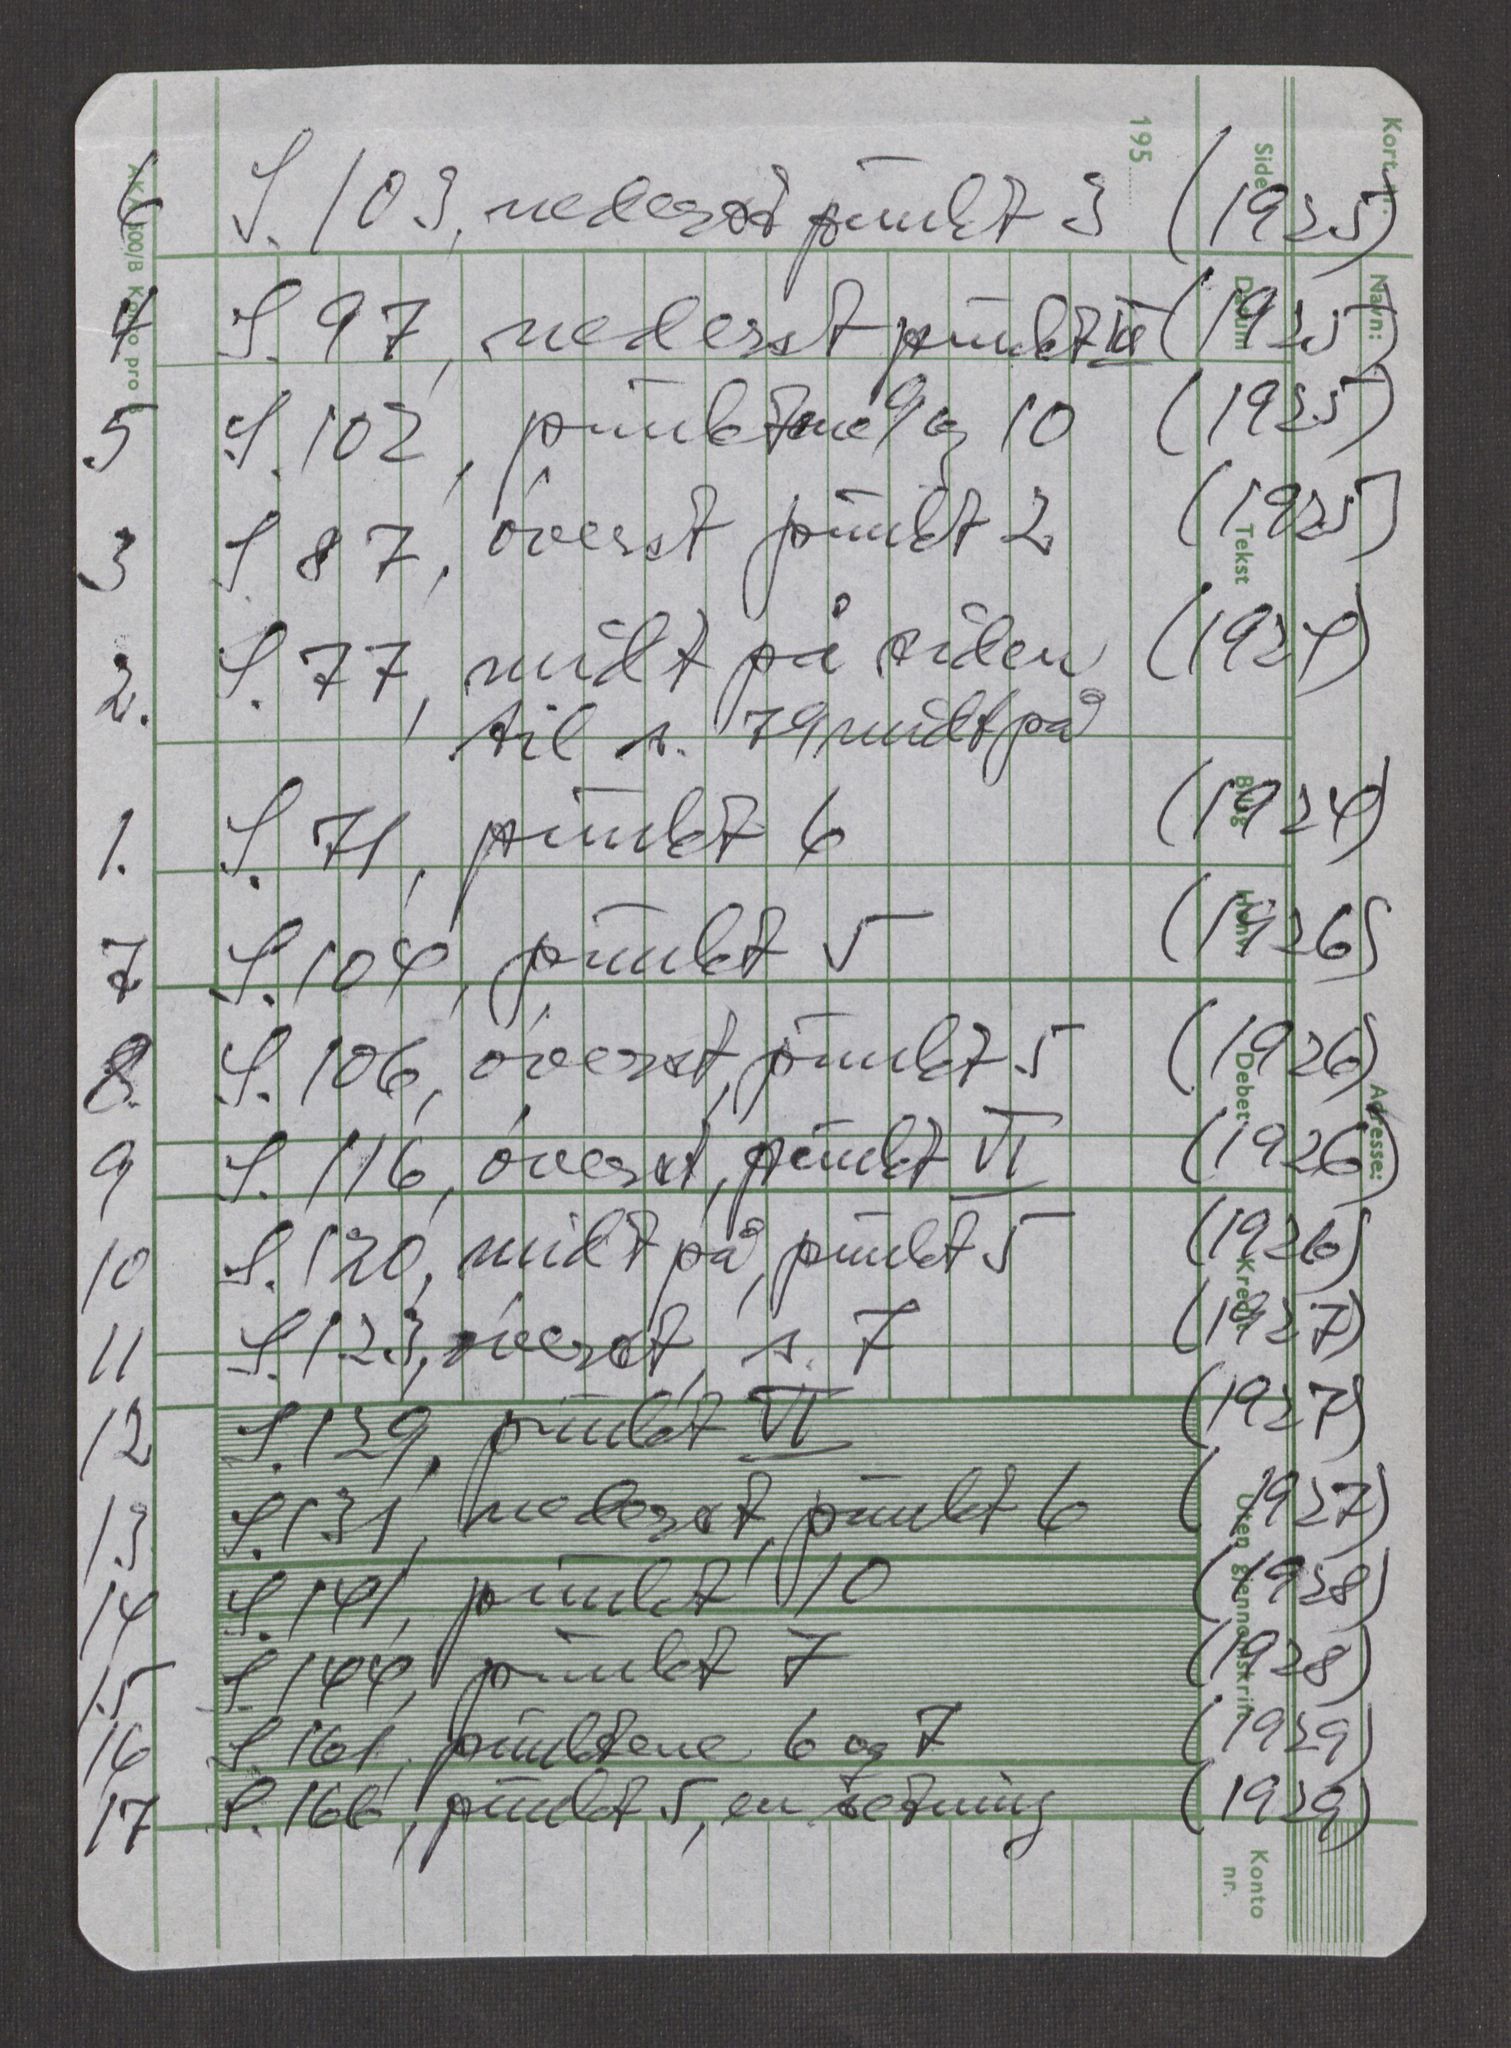 6 S. 103, nederst punkt 3 (1925)
4 S. 97, nederst punkt VI (1925)
5 S. 102, punktene 9 og 10 (1925)
3 S 87, øverst punkt 2 (1925)
2. S. 77, midt på siden (1924)
til s. 79 midt på
1. S. 71, punkt 6 (1924)
7 S. 104, punkt 5 (1926)
8. S. 106, øverst, punkt 5 (1926)
9 S. 116, øverst, punkt VI (1926)
10 S. 120, midt på, punkt 5 (1926)
11 S. 123, øverst, s. 7 (1927)
12 S. 129, punkt VI (1927)
13 S. 131, nederst, punkt 6 (1927)
14 S. 141, punkt 10 (1928)
15 S. 144, punkt 7 (1928)
16 S. 161, punktene 6 og 7 (1929)
17 S. 166, punkt 5, en setning (1929)
195
Side
Datum
Tekst
Bilag
Debet
Kredit
Uten gjennomskrift
Konto
nr.
Navn:
Adresse: